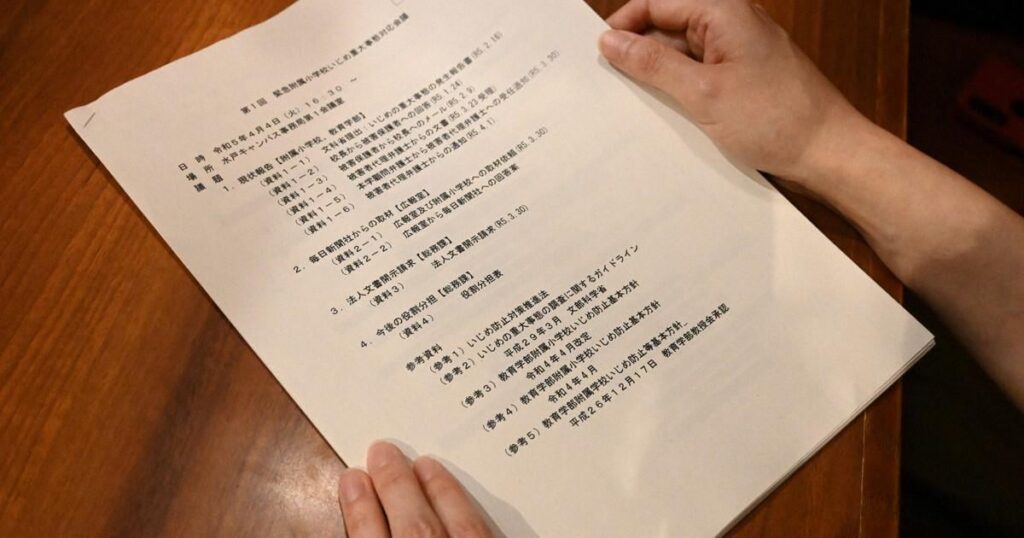 第1回 緊急附属小学校いじめ重大事態対応会議
日時 令和5年4月4日(火)16:30 ~
場所 水戸キャンパス事務局第1会議室
議題
1.現状報告【附属小学校、教育学部】
(資料1-1) 文科省提出:いじめの重大事態の発生報告書(R5.2.16)
(資料1-2) 校長から被害保護者への回答(R5.1.24)
(資料1-3) 被害保護者から校長へのメール(R5.2.9)
(資料1-4) 被害者代理弁護士からの文書(R5.3.23受理)
(資料1-5) 本学顧問弁護士から被害者代理弁護士への受任通知(R5.3.30)
(資料1-6) 被害者代理弁護士からの通知(R5.4.1)
2.毎日新聞社からの取材【広報室】
(資料2-1) 広報室及び附属小学校への取材依頼(R5.3.30)
(資料2-2) 広報室から毎日新聞社への回答案
3.法人文書開示請求【総務課】
(資料3) 法人文書開示請求(R5.3.30)
4.今後の役割分担【総務課】
(資料4) 役割分担表
参考資料
(参考1)いじめ防止対策推進法
(参考2)いじめの重大事態の調査に関するガイドライン
平成29年3月 文部科学省
(参考3)教育学部附属小学校いじめ防止基本方針
令和4年4月改定
(参考4)教育学部附属小学校いじめ防止基本方針
令和4年4月
(参考5)教育学部附属学校いじめ防止等基本方針
平成26年12月17日 教育学部教授会承認